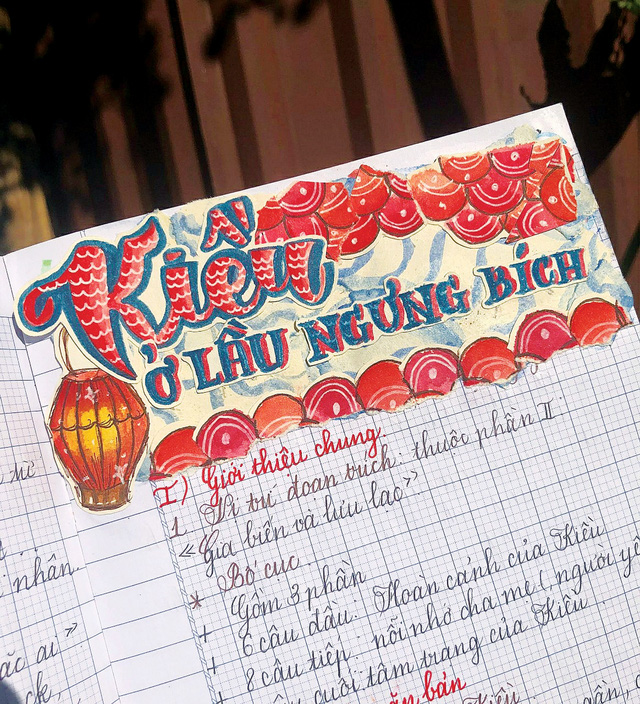 Kiều
Ở LẦU NGƯNG BÍCH
I) Giới thiệu chung.
1. Vị trí đoạn trích: thuộc phần II
«Gia biến và lưu lạc»
* Bố cục
Gồm 3 phần
+ 6 câu đầu: Hoàn cảnh của Kiều
+ 8 câu tiếp: nỗi nhớ cha mẹ (người yê
cuối tâm trạng của Kiều
ăn bản
Kiều
nhân.
ắc ai»